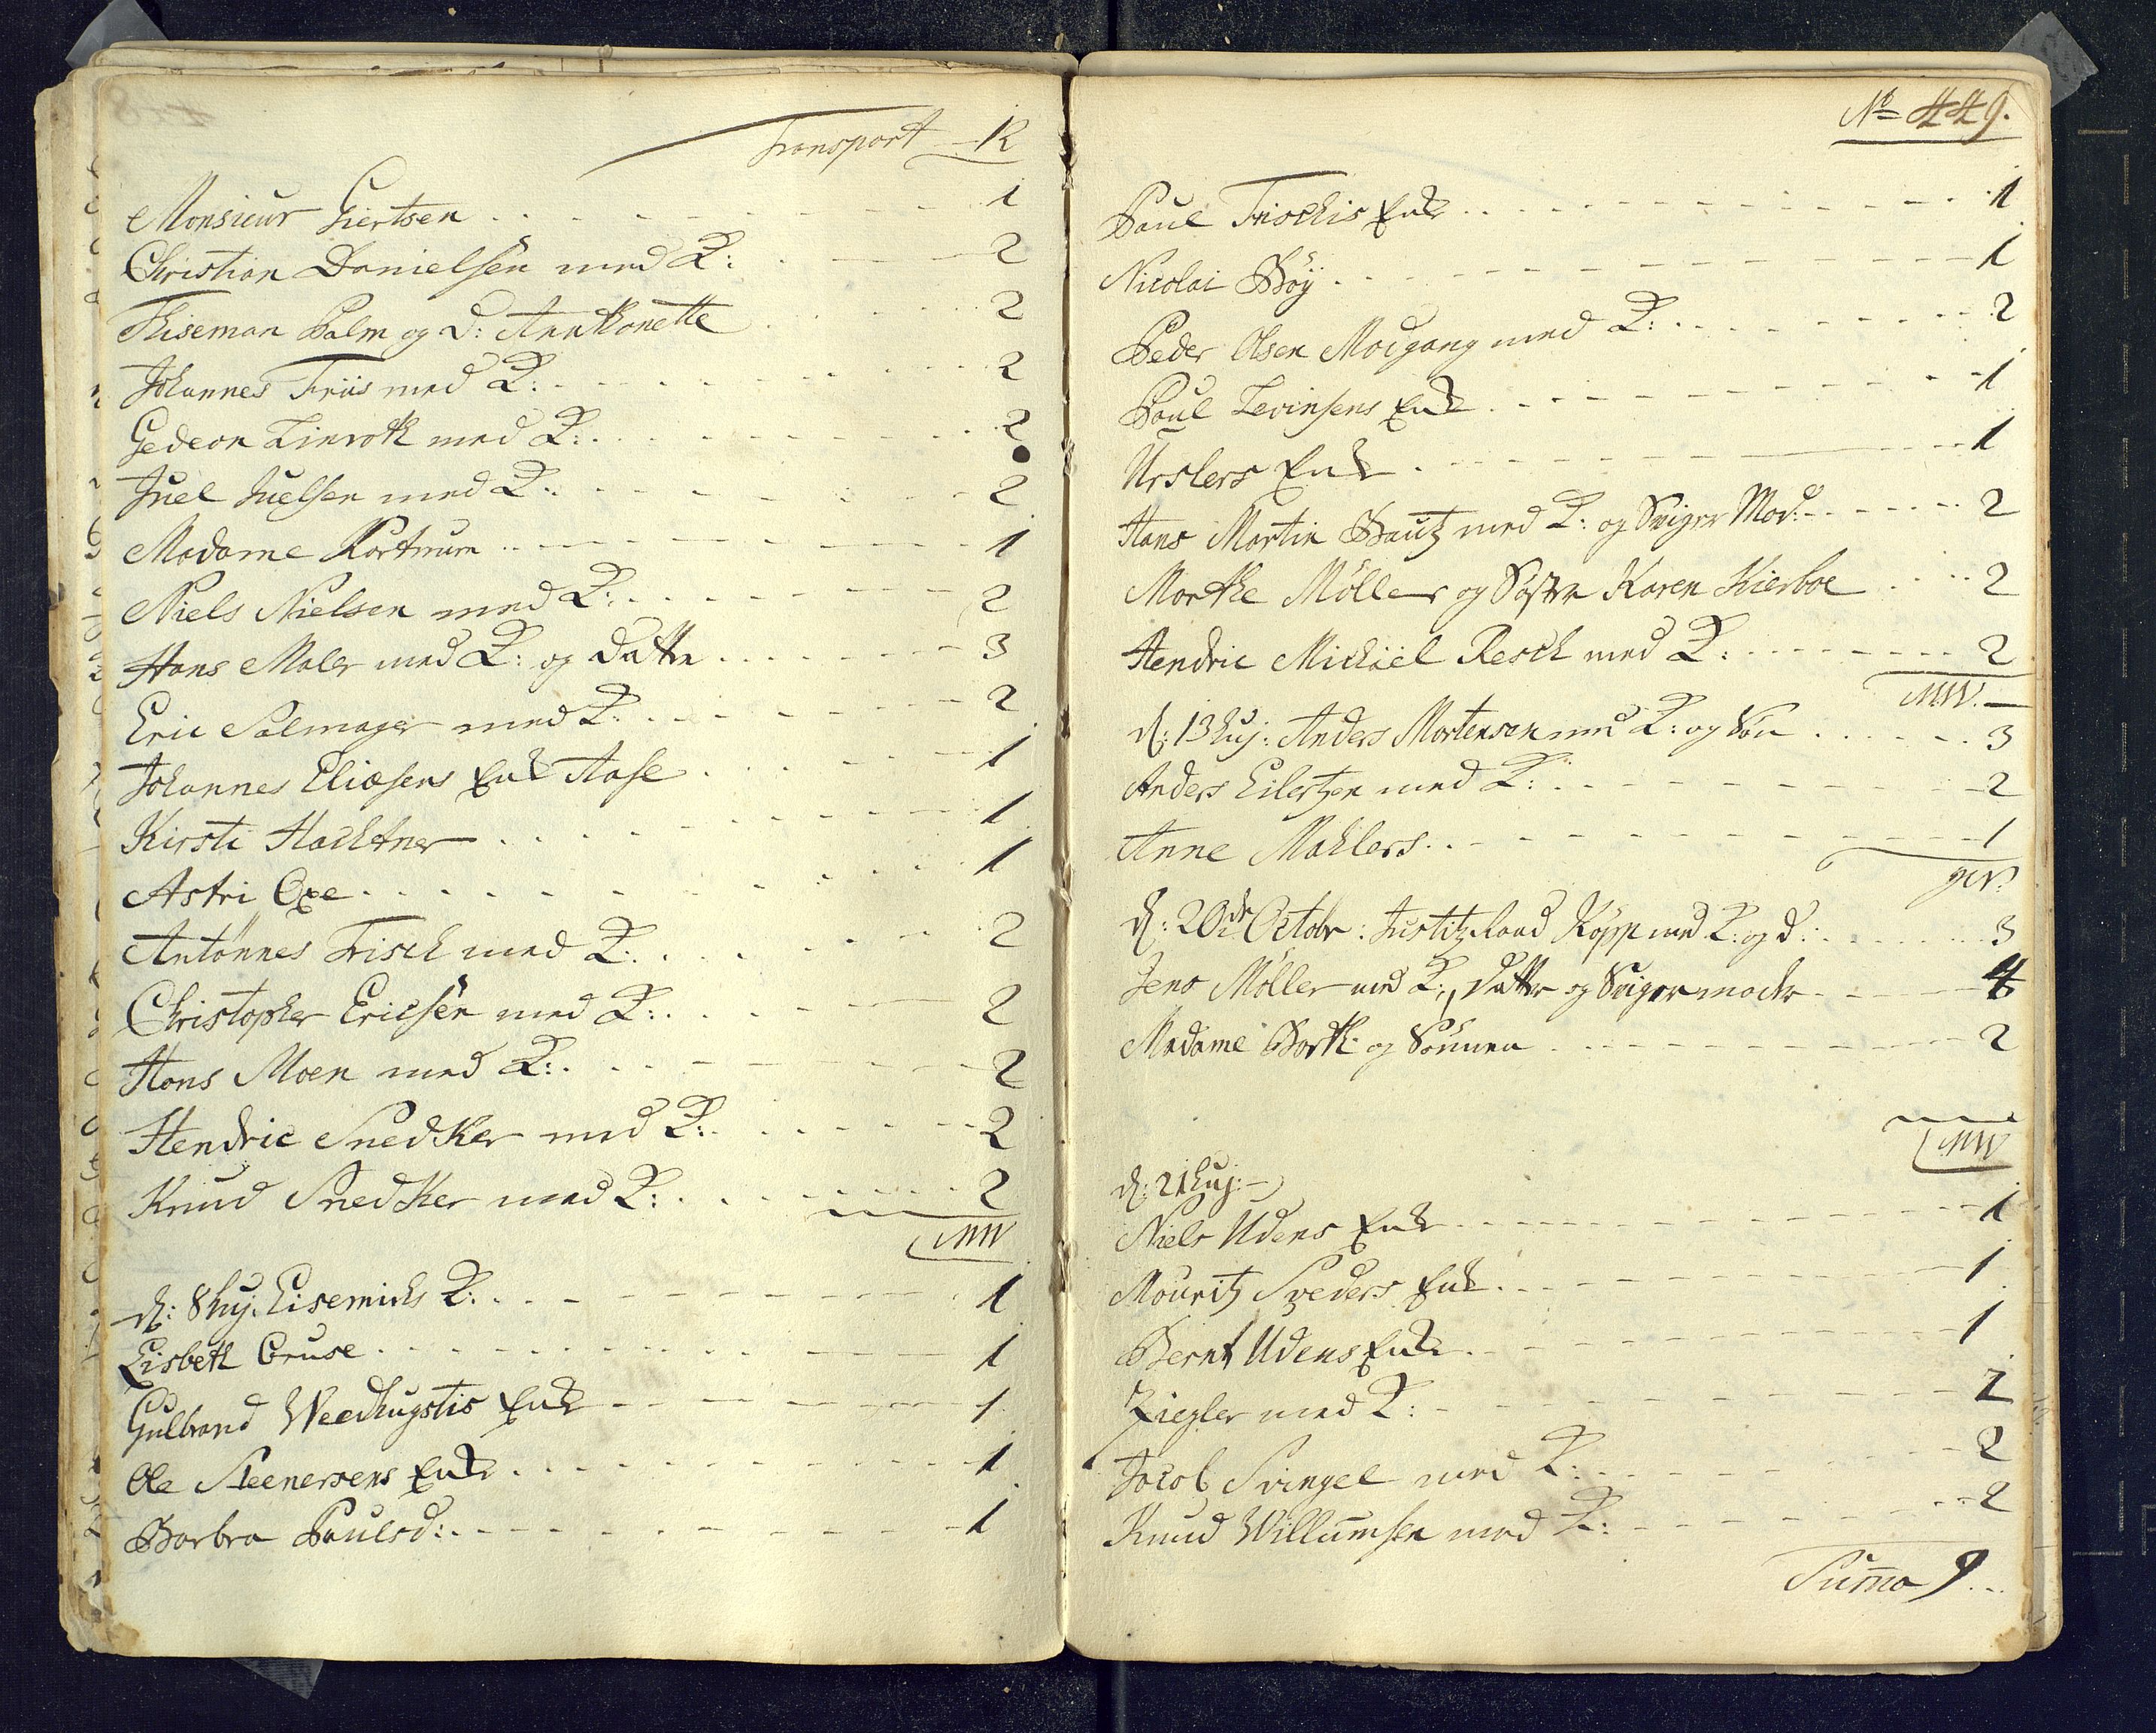 Transport - 12
Monsieur Giertsen - 1
Christian Danielsen med K: - 2
Thiseman Palm og D: Annthonette - 2
Johannes Friis med K: - 2
Gedeon Linroth med K: - 2
Juel Juelsen med K: - 2
Madame Kortnum - 1
Niels Nielsen med K: - 2
Hans Maler med K: og Datter - 3
Eric Salmager med K: - 2
Johannes Eliæsens Enke Aase - 1
Kirsti Hachtner - 1
Astri Oxe - 1
Antonnes Frisch med K: - 2
Christopher Ericsen med K: - 2
Hans Moen med K: - 2
Hendric Snedker med K: - 2
Knud Snedker med K: - 2
MW
d: 8 huj: Eisemichs K: - 1
Lisbeth Cruse - 1
Gulbrand Weedhugstis Enke - 1
Ole Steenersens Enke - 1
Barbra Paulsd: - 1
No 449.
Paul Frischis Enke - 1
Nicolai Böy - 1
Peder Olsen Modgang med K: - 2
Paul Levinsens Enke - 1
Urslers Enke - 1
Hans Martin Bautz med K: og Sviger Mod: - 2
Marthe Möller og Søster Karen Kierboe - 2
Hendric Michäel Resch med K: - 2
MW.
d: 13 huj: Anders Mortensen med K: og Søn - 3
Anders Eilertzen med K: - 2
Anne Mahlers - 1
d: 20de Octobr: Justitz Raad Köpp med K: og d: - 3
Jens Möller med K:, Datter og Svigermoder - 4
Madame Barth: og Sönnen - 2
MW
d: 21 huj:
Niels Udens Enke - 1
Mouritz Sveders Enke - 1
Bernt Udens Enke - 1
Ziegler med K: - 2
Jacob Svingel med K: - 2
Knud Willumsen med K: - 2
Summa 9